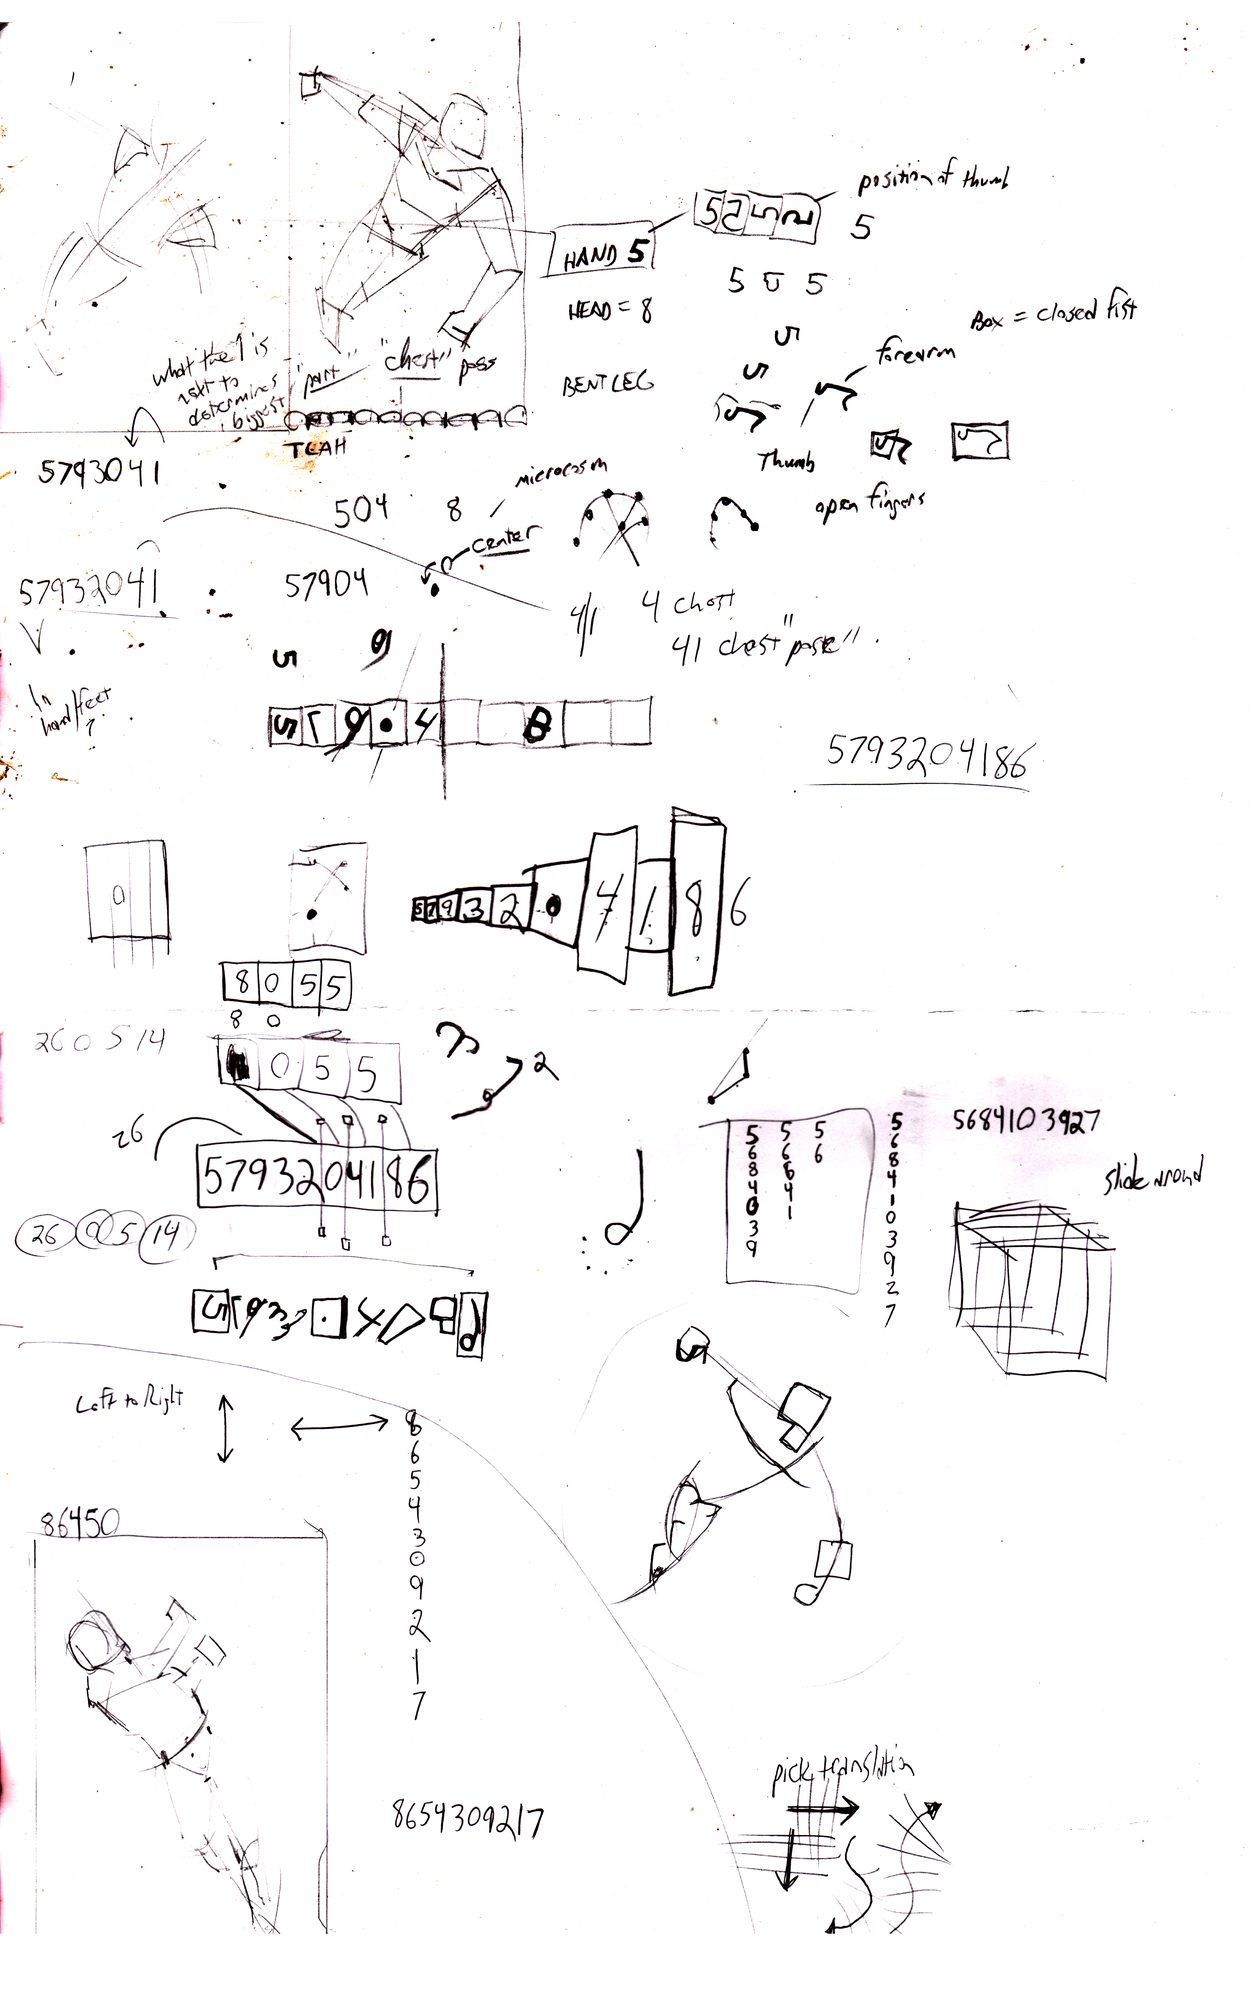 position of thumb
5 5 5 5
5
HAND 5
5 5 5
HEAD = 8
Box = closed fist
5
forearm
what the 1 is
next to
determines
biggest
"part"
"chest" pose
BENT LEG
5
5
5
Thumb
5 5
open fingers
TEAH
5793041
504 8
microcosm
center
57932041
57904
4/1
4 chest
41 chest "pose"
5 9
In
hand/feet
?
5 7 9 • 4 8
5793204186
0
5 7 9 3 2 • 4 1 8 6
8 0 5 5
8 0
260514
0 5 5
2
26
5793204186
26 05 14
5 5 5
6 6 6
8 8
4 4
0 1
3
9
5
6
8
4
1
0
3
9
2
7
5684103927
slide around
Left to Right
8
6
5
4
3
0
9
2
1
7
86450
8654309217
pick translation